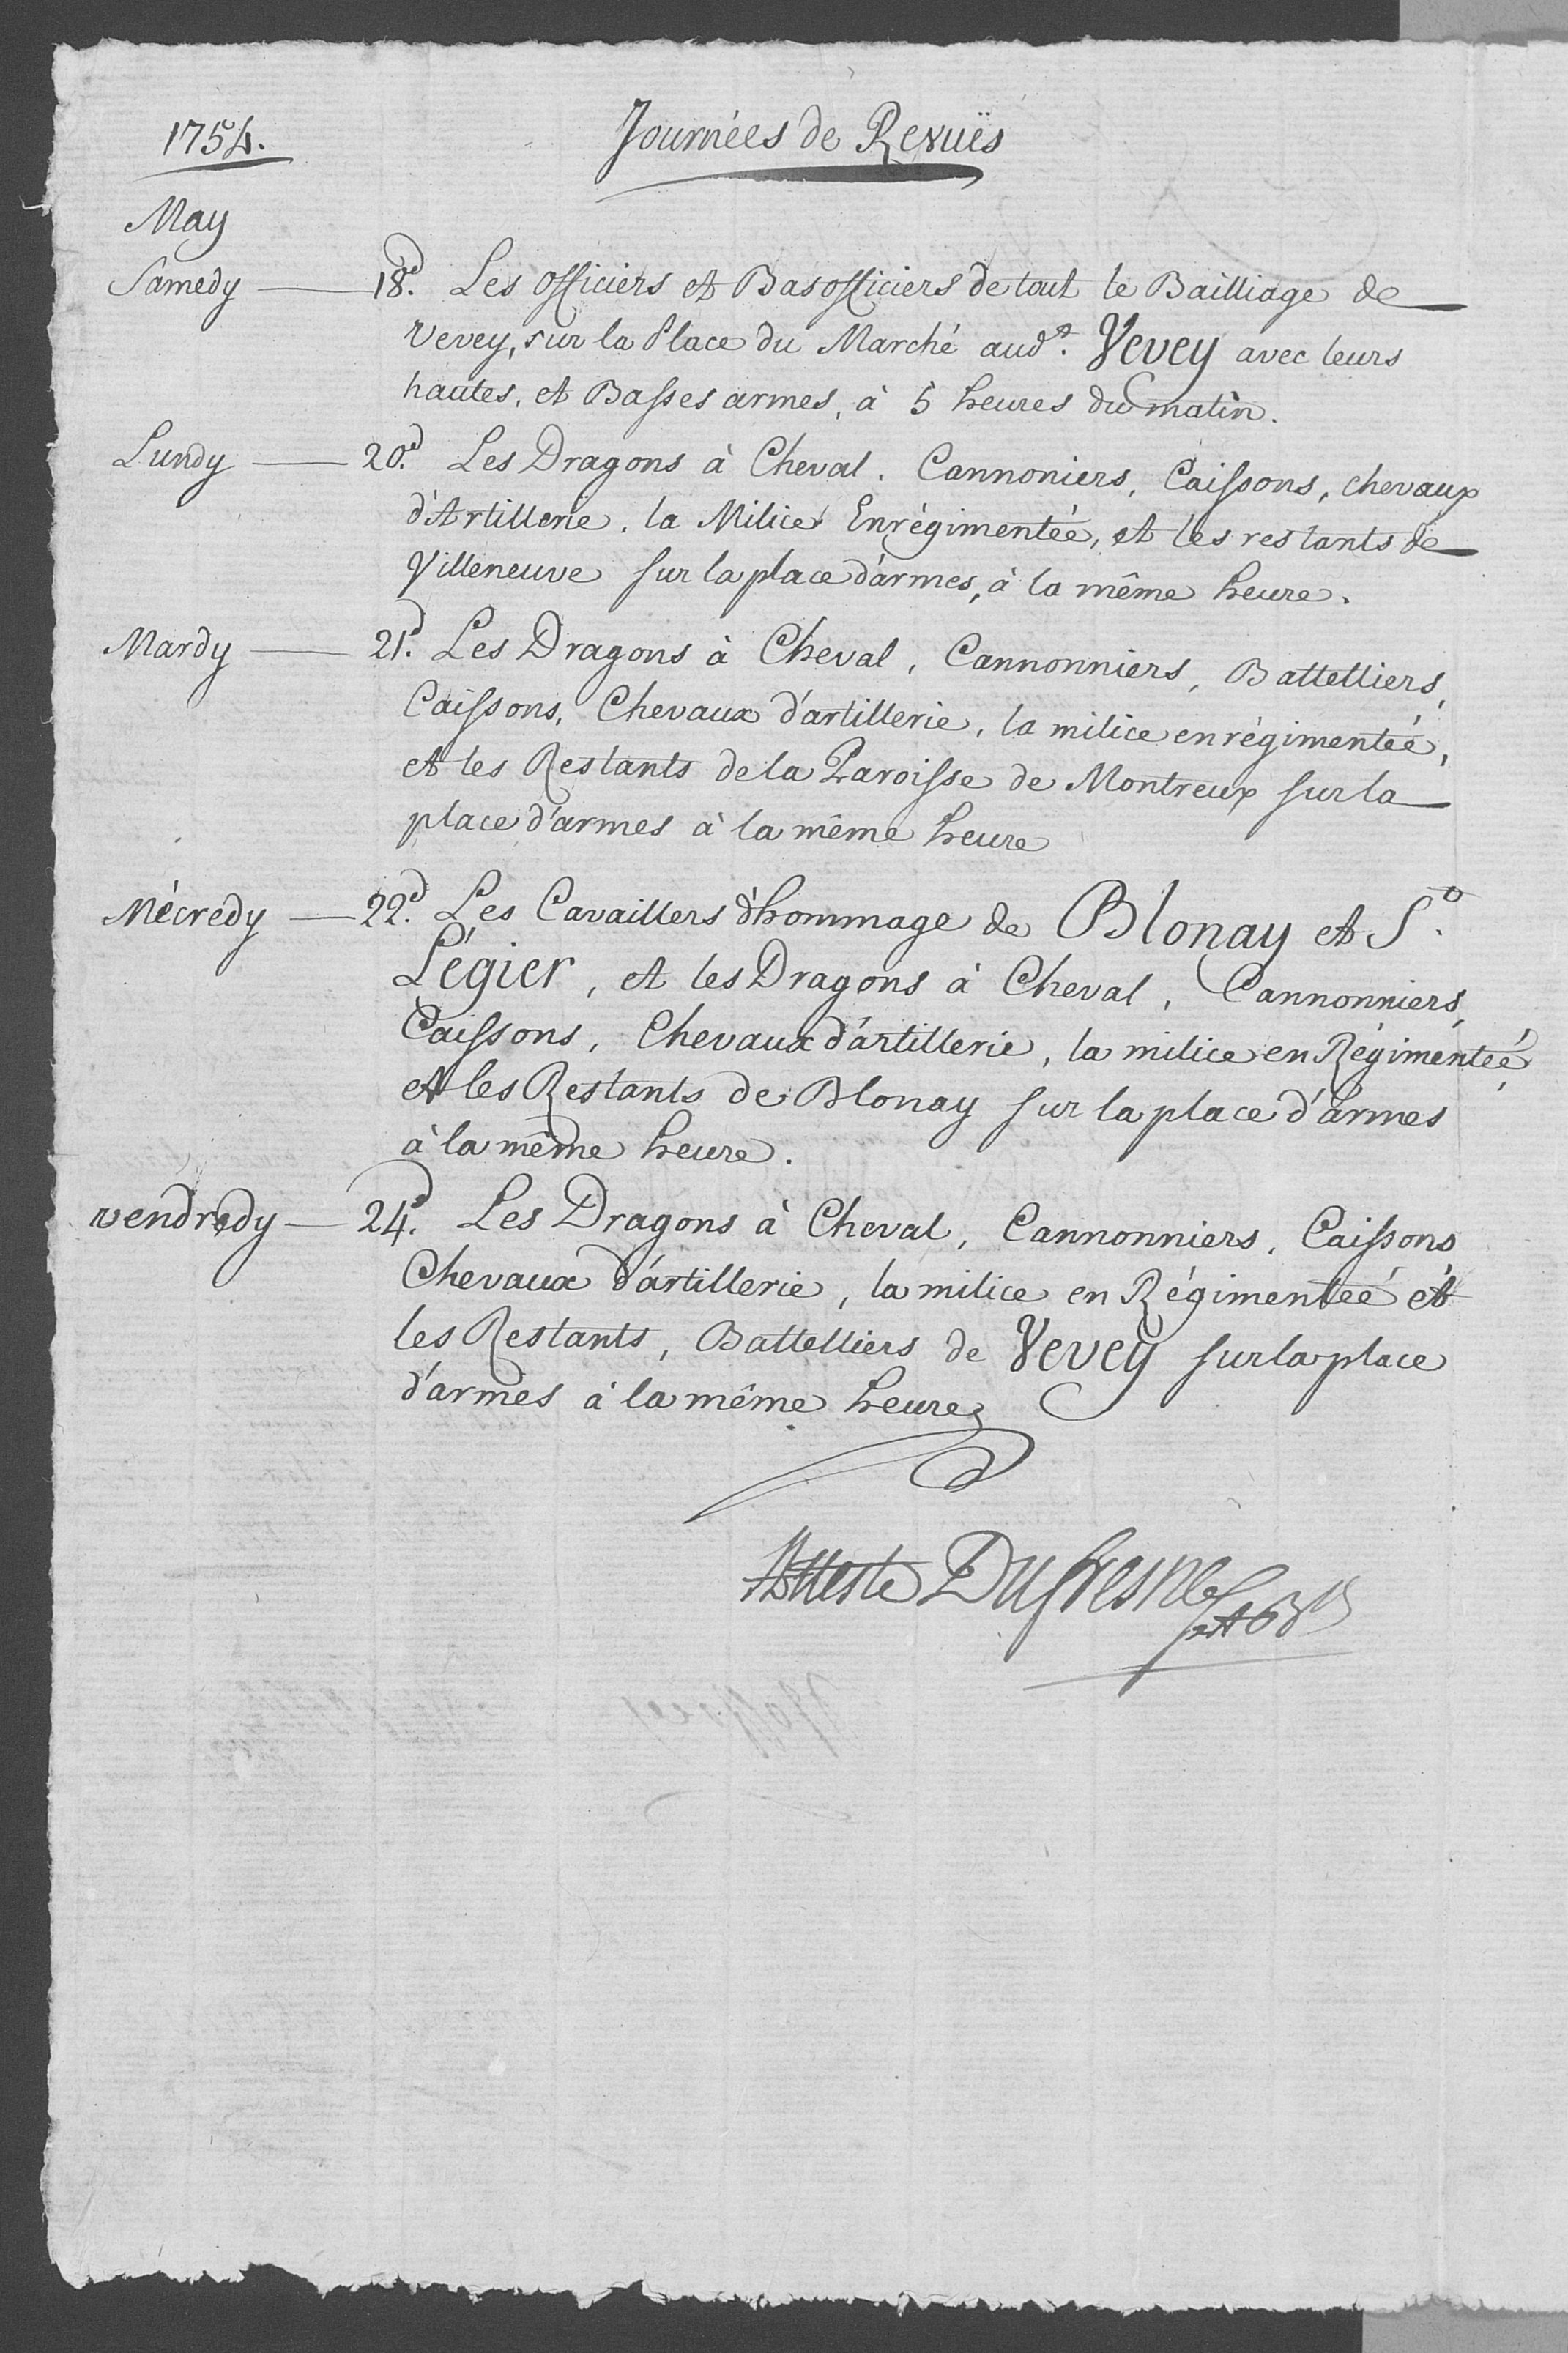 1754. Journées de Revuës
May
Samedy — 18.e Les Officiers et Basofficiers de tout le Bailliage de
Vevey, sur la Place du Marché aud.t Vevey avec leurs
hautes, et Basses armes, à 5 heures du matin.
Lundy — 20.e Les Dragons à Cheval, Cannoniers, Caissons, chevaux
d'Artillerie, la Milice Enrégimentée, et les restants de
Villeneuve sur la place d'armes, à la même heure.
Mardy — 21.e Les Dragons à Cheval, Cannonniers, Battelliers,
Caissons, Chevaux d'artillerie, la milice enrégimentée,
et les Restants de la Paroisse de Montreux sur la
place d'armes à la même heure
Mécredy — 22.e Les Cavaillers d'hommage de Blonay et S.t
Légier, et les Dragons à Cheval, Cannonniers,
Caissons, Chevaux d'artillerie, la milice en Régimentéé,
et les Restants de Blonay sur la place d'armes
à la même heure.
vendredy — 24.e Les Dragons à Cheval, Cannonniers, Caissons
Chevaux d'artillerie, la milice en Régimenteé et
les Restants, Battelliers de Vevey sur la place
d'armes à la même heure
Atteste Dufresne